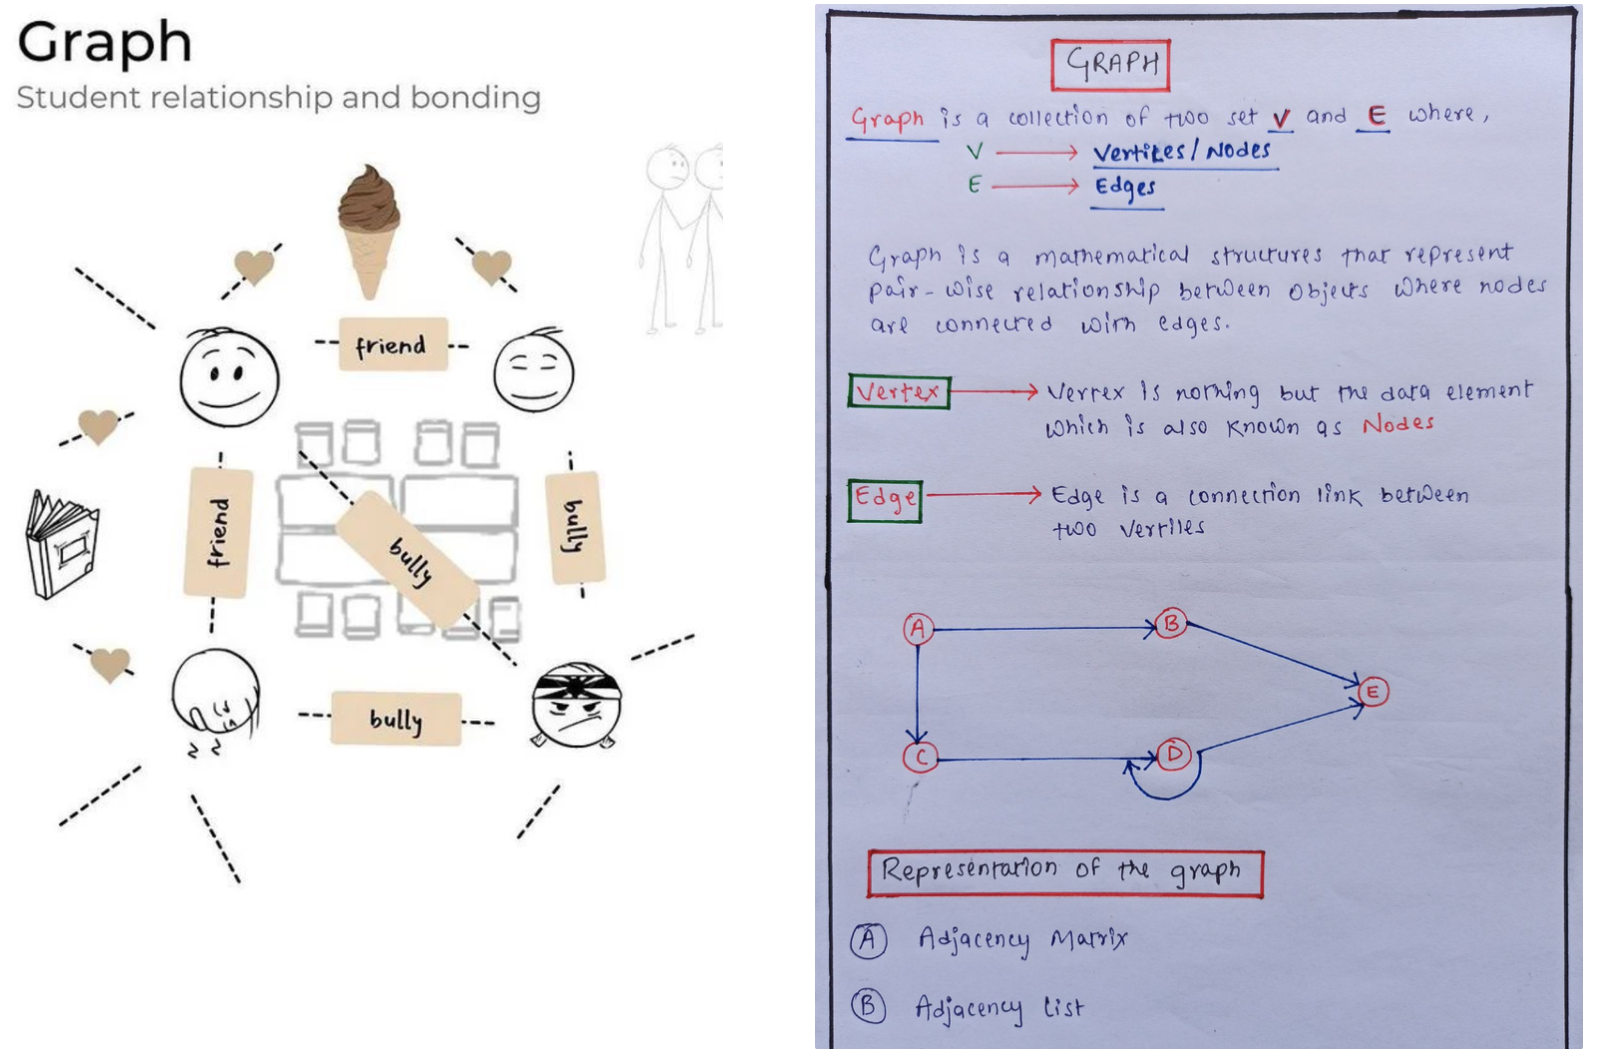 Graph
Student relationship and bonding
friend
friend
bully
bully
bully
GRAPH
Graph is a collection of two set V and E where,
V → Vertices / Nodes
E → Edges
Graph is a mathematical structures that represent
pair-wise relationship between objects where nodes
are connected with edges.
Vertex → Vertex is nothing but the data element
which is also known as Nodes
Edge → Edge is a connection link between
two vertices
A
B
E
C
D
Representation of the graph
A Adjacency Matrix
B Adjacency List